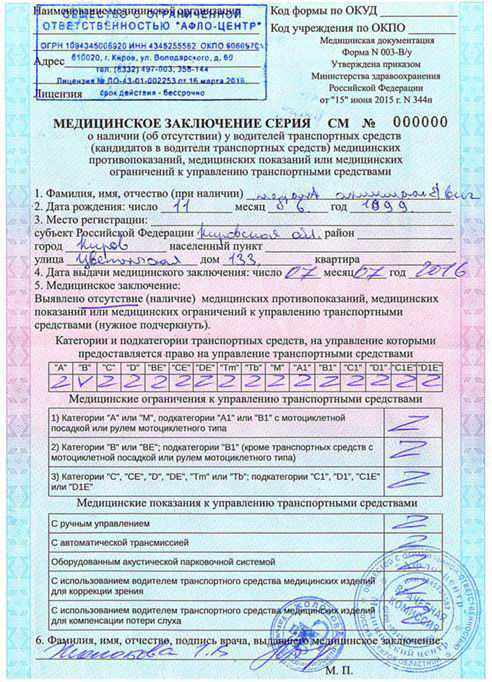 Наименование медицинской организации
ОБЩЕСТВО С ОГРАНИЧЕННОЙ
ОТВЕТСТВЕННОСТЬЮ "АФЛО-ЦЕНТР"
ОГРН 1094345006920 ИНН 4345255562 ОКПО
Адрес 610020, г. Киров, ул. Володарского, д. 60
тел. (8332) 497-003, 358-144
Лицензия № ЛО-43-01-002253 от 16 марта 2016
Лицензия срок действия - бессрочно
Код формы по ОКУД
Код учреждения по ОКПО
Медицинская документация
Форма N 003-В/у
Утверждена приказом
Министерства здравоохранения
Российской Федерации
от "15" июня 2015 г. N 344н
МЕДИЦИНСКОЕ ЗАКЛЮЧЕНИЕ СЕРИЯ СМ № 000000
о наличии (об отсутствии) у водителей транспортных средств
(кандидатов в водители транспортных средств) медицинских
противопоказаний, медицинских показаний или медицинских
ограничений к управлению транспортными средствами
1. Фамилия, имя, отчество (при наличии)
2. Дата рождения: число 11 месяц 6 год 1999
3. Место регистрации:
субъект Российской Федерации Кировская обл. район
город Киров населенный пункт
улица Цветочная дом 133, квартира
4. Дата выдачи медицинского заключения: число 07 месяц 07 год 2016
5. Медицинское заключение:
Выявлено отсутствие (наличие) медицинских противопоказаний, медицинских
показаний или медицинских ограничений к управлению транспортными
средствами (нужное подчеркнуть).
Категории и подкатегории транспортных средств, на управление которыми
предоставляется право на управление транспортными средствами
"A" "B" "C" "D" "BE" "CE" "DE" "Tm" "Tb" "M" "A1" "B1" "C1" "D1" "C1E" "D1E"
Z V Z Z Z Z Z Z Z Z Z Z Z Z Z Z
Медицинские ограничения к управлению транспортными средствами
1) Категории "А" или "М", подкатегории "А1" или "В1" с мотоциклетной Z
посадкой или рулем мотоциклетного типа
2) Категории "В" или "ВЕ"; подкатегории "В1" (кроме транспортных средств с Z
мотоциклетной посадкой или рулем мотоциклетного типа)
3) Категории "С", "СЕ", "D", "DE", "Tm" или "Tb"; подкатегории "С1", "D1", "C1E" Z
или "D1E"
Медицинские показания к управлению транспортными средствами
С ручным управлением Z
С автоматической трансмиссией Z
Оборудованным акустической парковочной системой Z
С использованием водителем транспортного средства медицинских изделий Z
для коррекции зрения
С использованием водителем транспортного средства медицинских изделий Z
для компенсации потери слуха
6. Фамилия, имя, отчество, подпись врача, выдавшего медицинское заключение:
М. П.